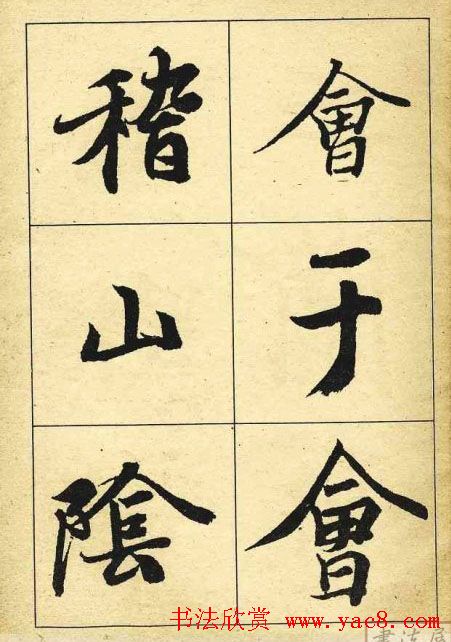 會于會
稽山陰
书法欣赏 www.yac8.com
書法屋